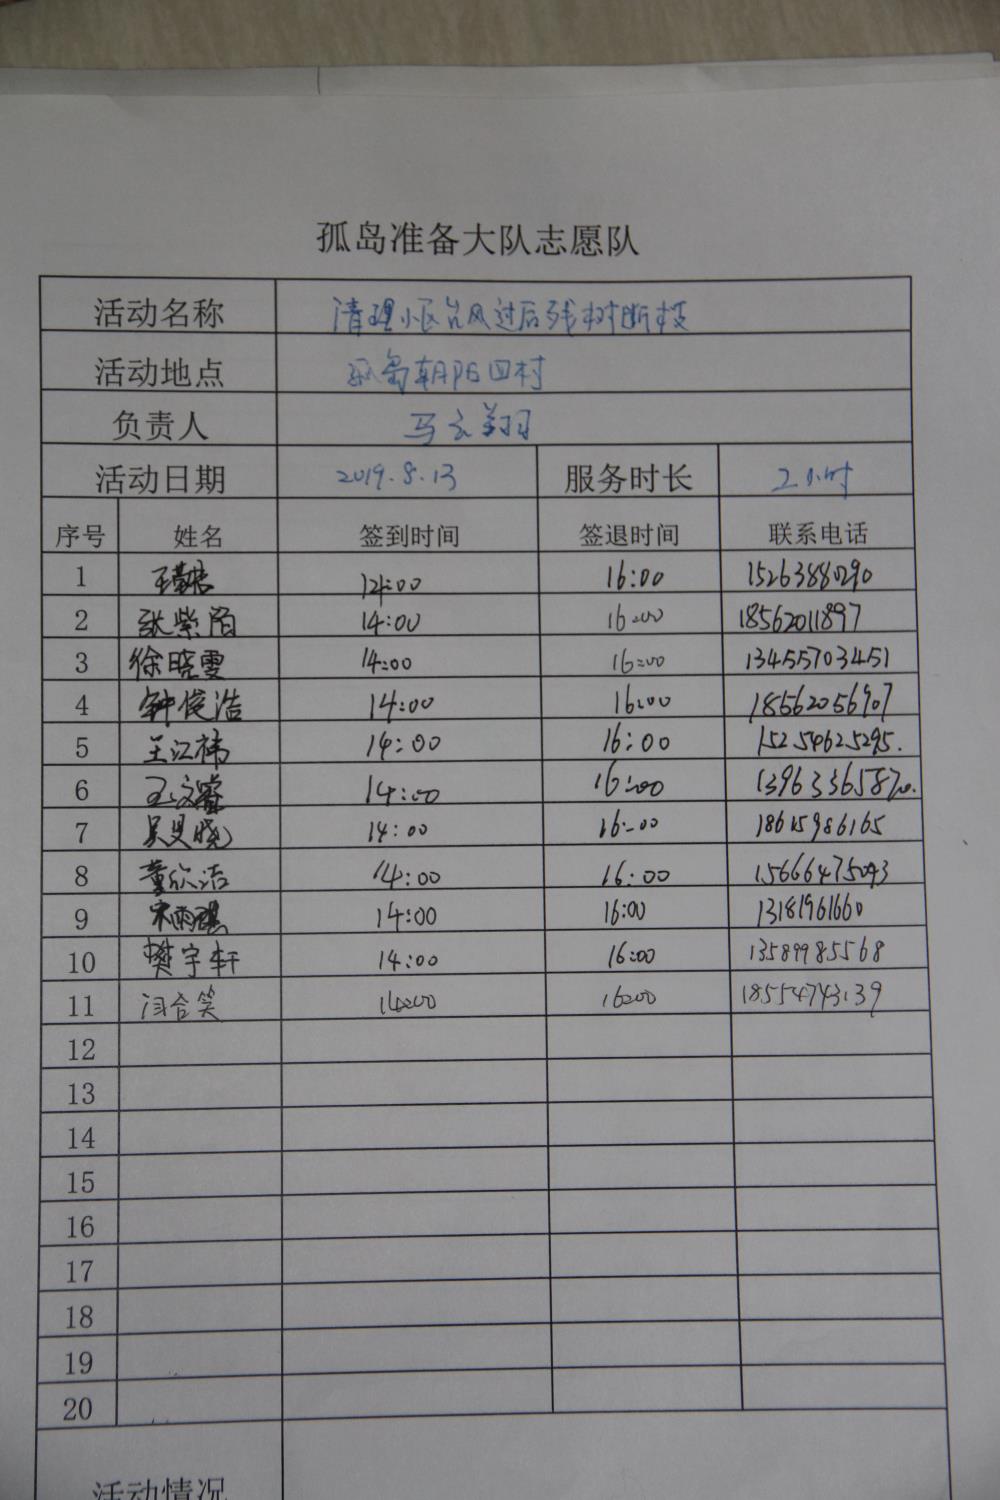 孤岛准备大队志愿队
活动名称 清理小区台风过后残树断枝
活动地点 孤岛朝阳四村
负责人 马云翔
活动日期 2019.8.13 服务时长 2小时
序号 姓名 签到时间 签退时间 联系电话
1 14:00 16:00 15263880290
2 张紫陌 14:00 16:00 18562011897
3 徐晓雯 14:00 16:00 13455703451
4 钟俊浩 14:00 16:00 18562056907
5 王江祎 14:00 16:00 15254625295.
6 王文睿 14:00 16:00
7 吴昊晓 14:00 16:00 18615986165
8 董欣洁 14:00 16:00 15666475093
9 宋雨琪 14:00 16:00 13181961660
10 樊宇轩 14:00 16:00 13589985568
11 闫合笑 14:00 16:00 18554743139
12
13
14
15
16
17
18
19
20
活动情况